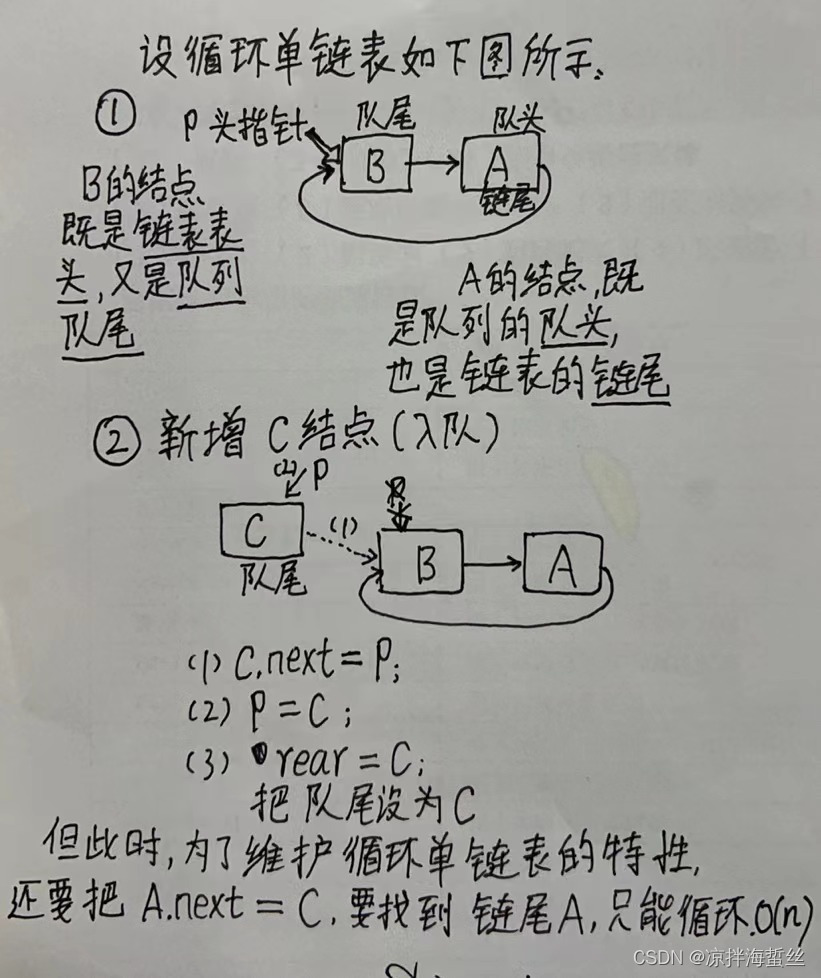 设循环单链表如下图所示.
① P头指针 队尾 队头
B A
链尾
B的结点
既是链表表
头,又是队列
队尾
A的结点,既
是队列的队头,
也是链表的链尾
② 新增 C结点(入队)
(2) P
C (1) B A
队尾
(1) C.next = P;
(2) P = C ;
(3) rear = C;
把 队尾设为C
但此时,为了维护循环单链表的特性,
还要把 A.next = C. 要找到 链尾A, 只能循环.O(n)
CSDN @凉拌海蜇丝